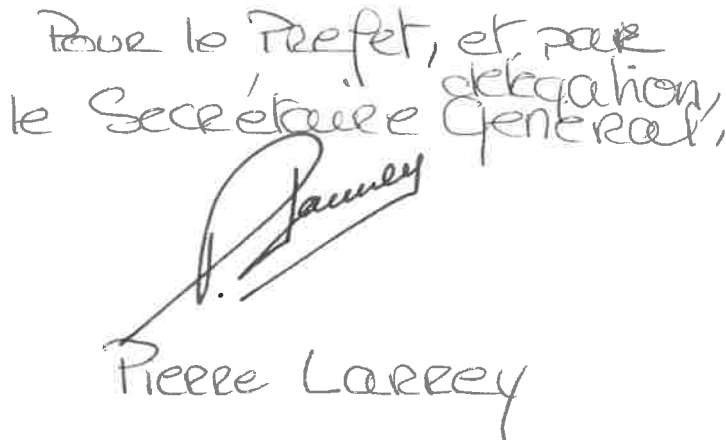 Pour le Préfet, et par
délégation,
le Secrétaire Général,
P. Larrey
Pierre Larrey